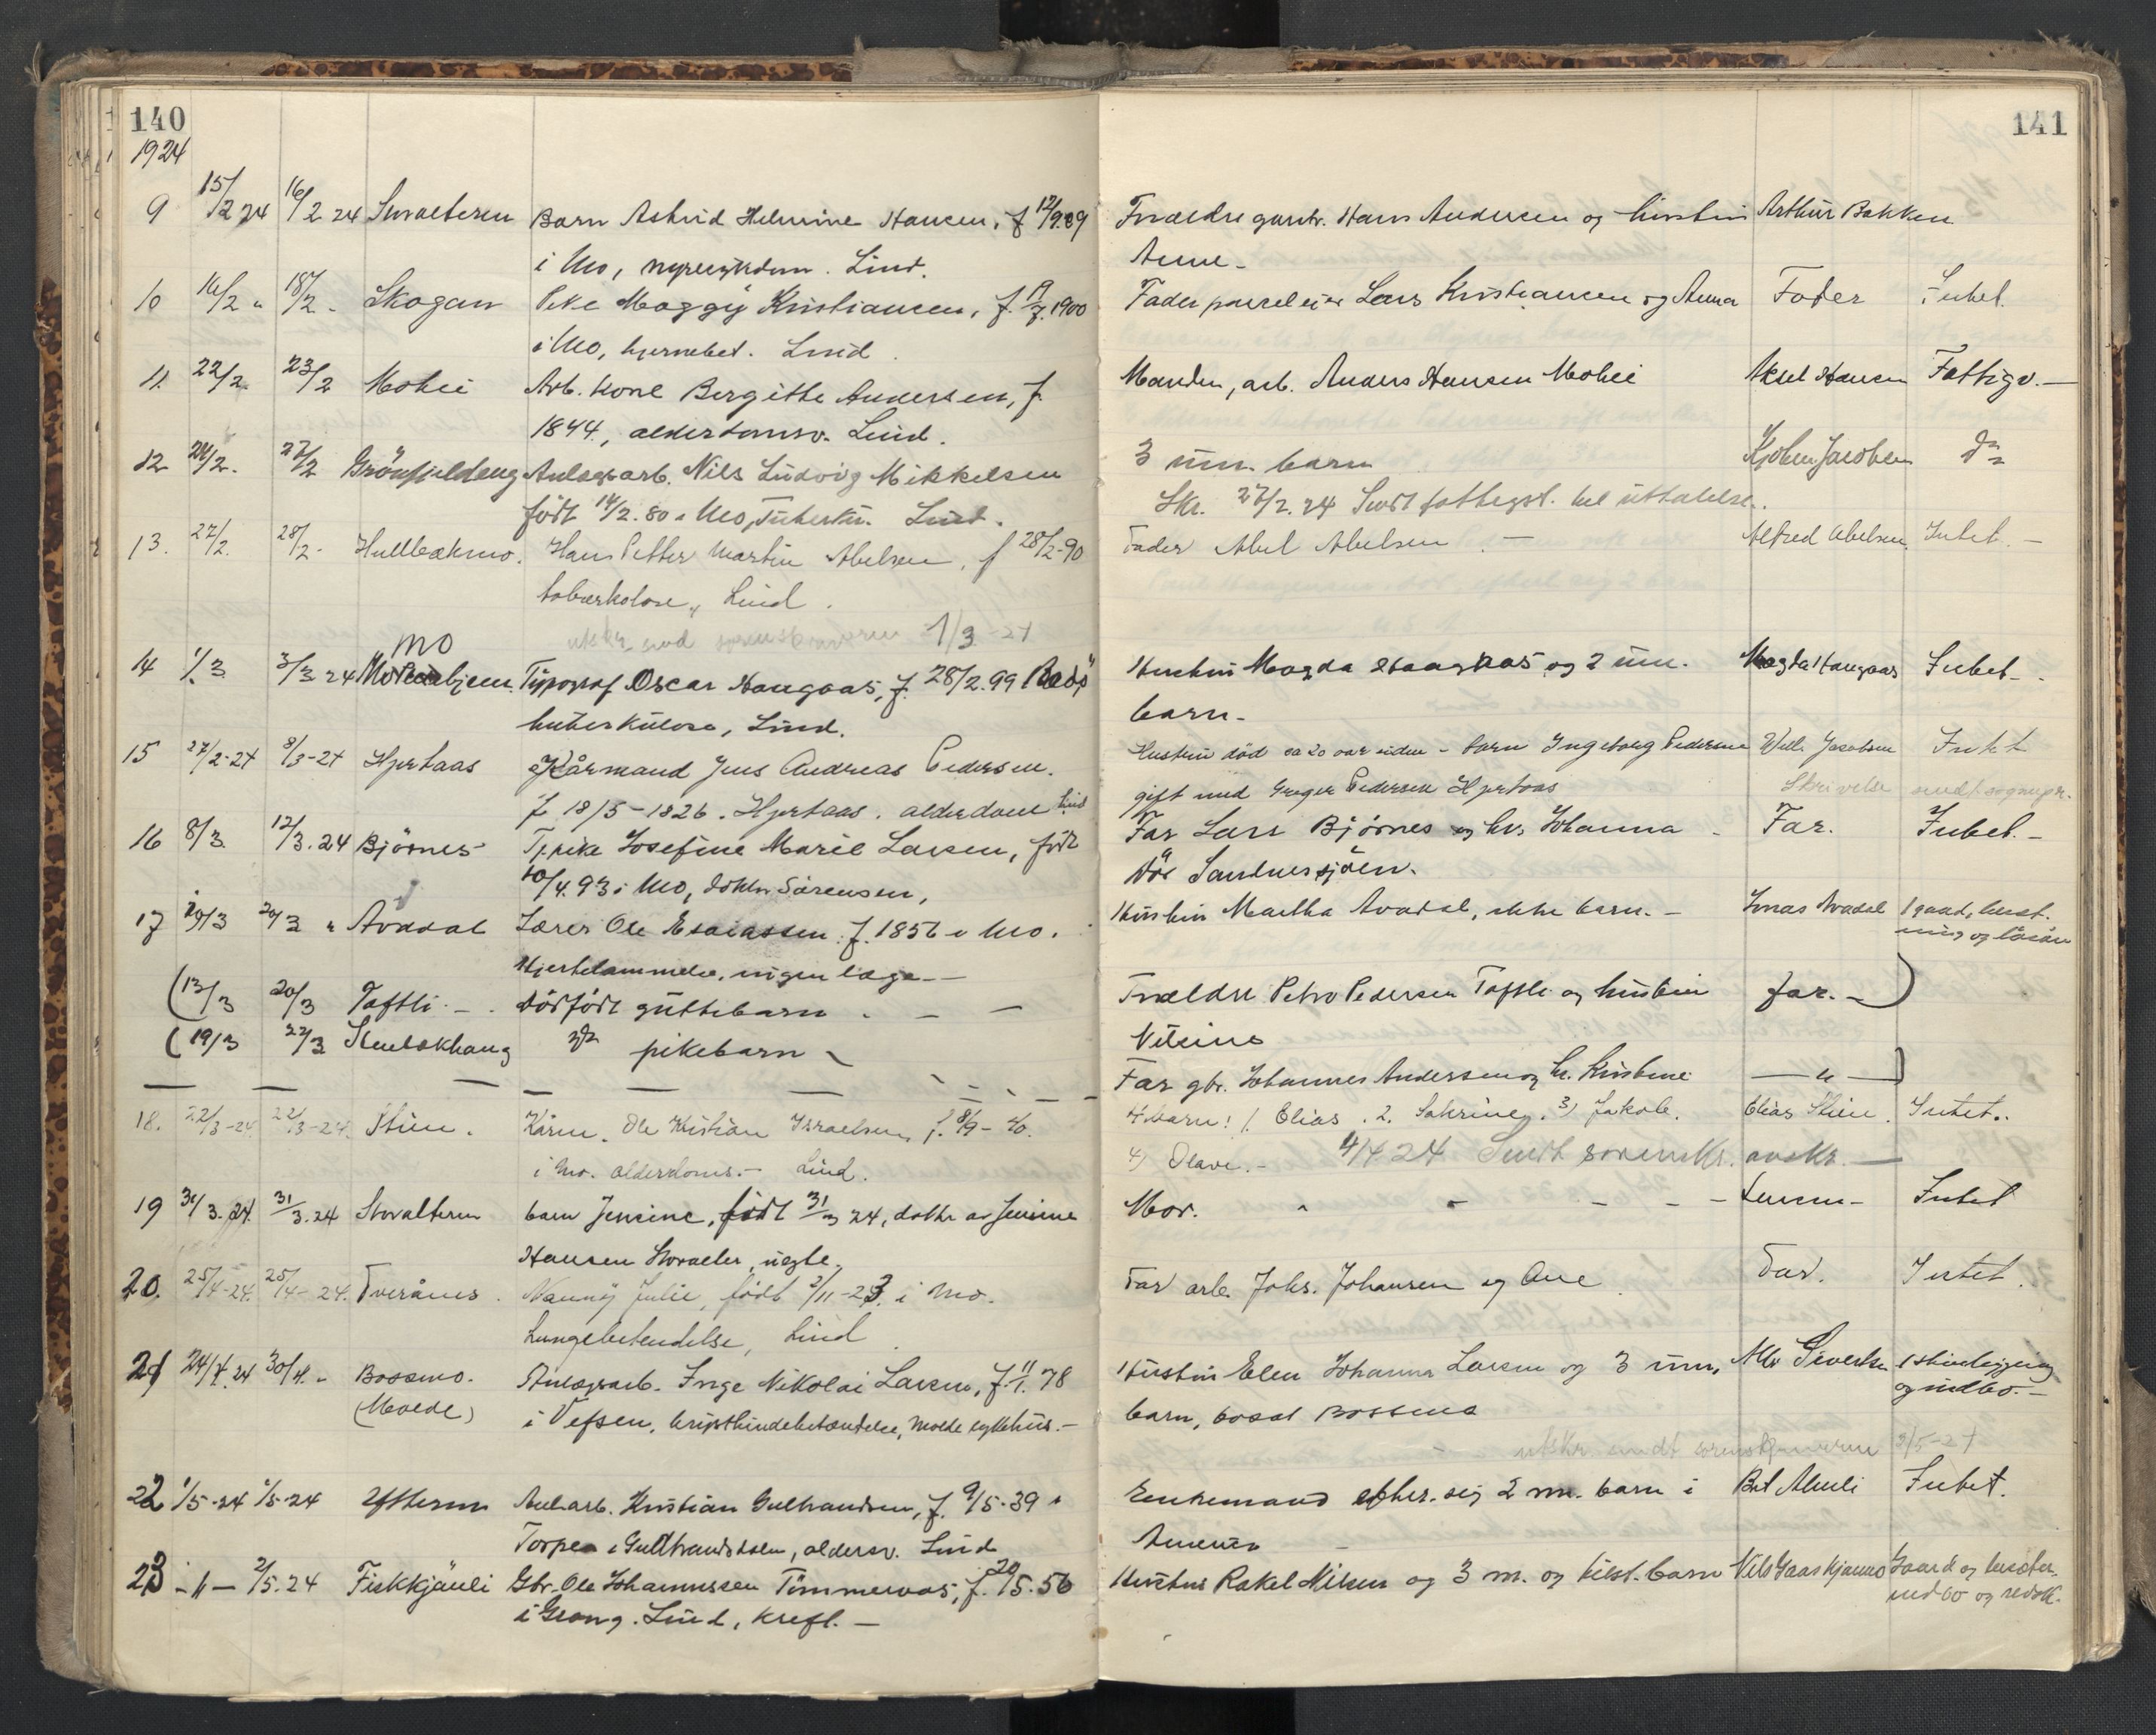 140
1924
9 15/2 24 16/2 24 Storalteren Barn Astrid Helmine Hansen, f 12/9.09
i Mo, nyresykdom. Lind.
10 16/2 " 18/2 - Skogan Pike Maggy Kristiansen, f. 19/7.1900
i Mo, hjernebet. Lind.
11. 22/2. 23/2 Moheii Arb. kone Bergitte Andersen, f.
1844, alderdomsv. Lind.
12 24/2. 27/2 Grönfjeldaug Anlægsarb. Nils Ludvig Mikkelsen
født 14/2.80 i Mo, Tuberku. Lind.
13. 27/2. 28/2- Hellbækmo. Hans Petter Martin Abelsen, f 28/2-90
toberkolose, Lind.
utskr. send sorenskriveren 1/3-24
14 1/3 3/3 24 Mo Typograf Oscar Haugaas, f. 28/2.99 Rødö
tuberkulose, Lind.
15 27/2-24 8/3-24 Hjertaas Kårmand Jens Andreas Pedersen.
f 18/5-1826. Hjertaas. alderdom Lind
16 8/3 12/3.24 Bjørnes Tj.pike Josefine Marie Larsen, født
10/4.93 i Mo, doktor Sørensen,
17 20/3 " Avadal Lærer Ole Esaiassen f. 1856 i Mo.
Hjertelammelse, ingen læge -
(13/3 20/3 Toftli - . Dødfødt guttebarn . - -
(19/3 22/3 Stenbekhaug do pikebarn
18. 22/3-24 22/3-24. Stien. Kårm. Ole Kristian Israelsen, f. 8/9-40.
i Mo. alderdoms.- Lind.
19 31/3.24. 31/3.24 Storalteren barn Jensine, født 31/3 24, datter av Jensine
Hansen Storalter, ugte.
20. 25/4-24. 25/4-24. Tverånes. Nanny Julie, født 2/11-23 i Mo.
Lungebetendelse, Lind
21 24/4.24 30/4. - Bossmo. Anlægsarb. Inge Nikolai Larsen, f. 11/1.78
(Molde) i Vefsen, bristhindebetændelse, Molde sykehus.-
22 1/5-24 1/5-24 Ytteren Anl.arb. Kristian Gulbrandsen, f. 9/5.39 i
Torpen i Gulbrandsdalen, aldersv. Lind
23 -"- 2/5.24 Fiskkjønli Gbr. Ole Johannessen Tømmervas, f. 20/5.56
i Grong. Lind, kreft.-
141
Forældre gaardbr. Hans Andersen og hustru Arthur Bakken
Anne -
Fader parceleier Lars Kristiansen og Anna Fader Intet.
Manden, arb. Anders Hansen Moheii Aksel Hansen Fattigv.-
3 um. barn Jacobsen do
Skr. 27/2.24 Sendt fattigst. til uttalelse.
Fader Abel Abelsen. - Alfred Abelsen. Intet.-
Hustru Magda Haugaas og 2 um. Magda Haugaas Intet-.
barn.
Hustru død ca 20 aar siden - barn Ingeborg Pedersen Jacobsen Intet
gift med Greger Pedersen Hjertaas Skrivelse sendt sognepr.
Far Lars Bjørnes og hu. Johanna - Far. Intet.-
Dør Sandnessjøen.
Hustru Martha Avadal, ikke barn.- Jonas Avadal 1 gaard, besæt-
ning og løsøre
Forældre Petro Pedersen Toftli og hustru far. -)
Far gbr. Johannes Andersen og hu. Kristine -"-)
4 barn: 1. Elias. 2. Sakrine, 3) Jakob. Elias Stien. Intet..
4) Olave.- 4/4 24 Sendt sorenskr. avskr.-
Mor. - - - - Larsen- Intet
Far arb. Johs. Johansen og Ane. Far. Intet.
Hustru Elen Johanna Larsen og 3 um. Sivertsen
barn, bosat Bossmo og indbo.-
utskr. sendt sorenskriveren 2/5-24
Enkemand efter. sig 2 m. barn i Intet.
Amerika -
Hustru Rakel Nilsen og 3 m. og tilst. barn Nils Gaaskjønmo Gaard og besætn.
indbo og redsk.